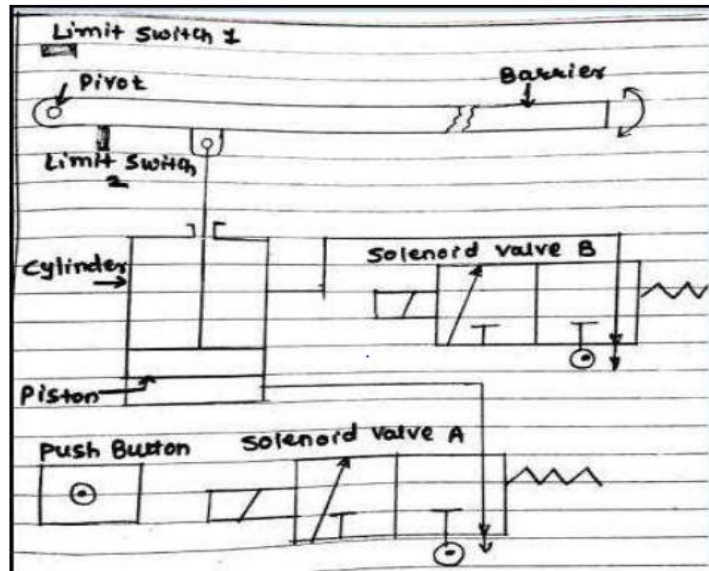 Limit Switch 1
Pivot
Barrier
Limit Switch
2
Solenoid valve B
Cylinder
Piston
Push Button
Solenoid valve A